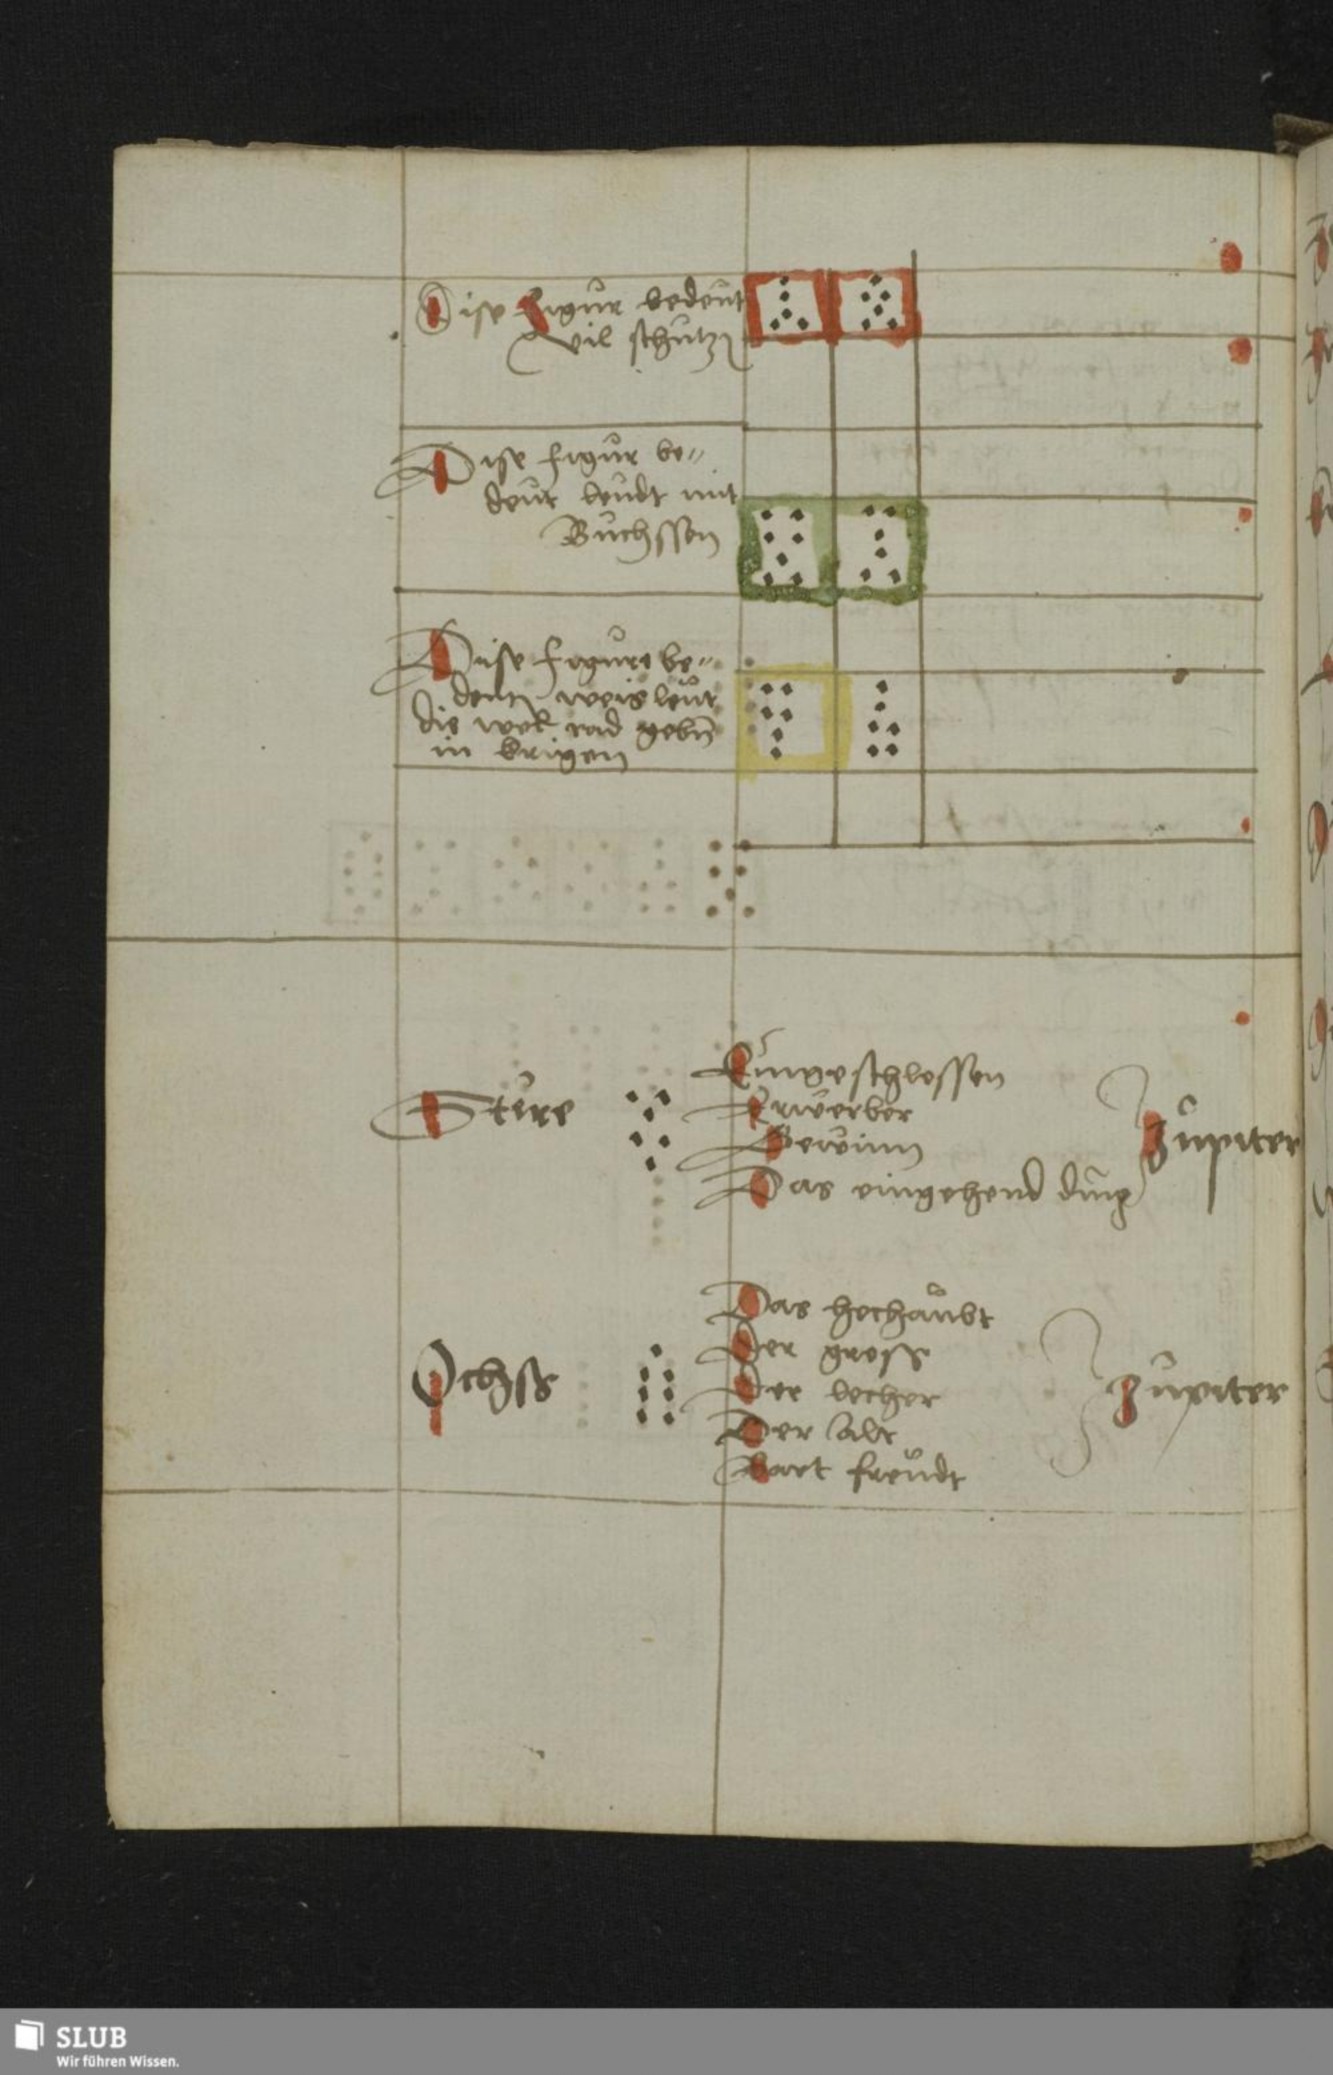 Dise Figur bedeut
vil schutzn
Dise figur be„
deut leudt mit
Buchssen
Dise figure be„
deutn weis leut
die wol rad gebn
in krigen
Stire
Eingeschlossen
Erwerber
Gewinn
Das eingehend ding
Jupiter
Ochss
Das hochaubt
Der gross
Der locher
Der alt
Bart freudt
Jupiter
SLUB
Wir führen Wissen.